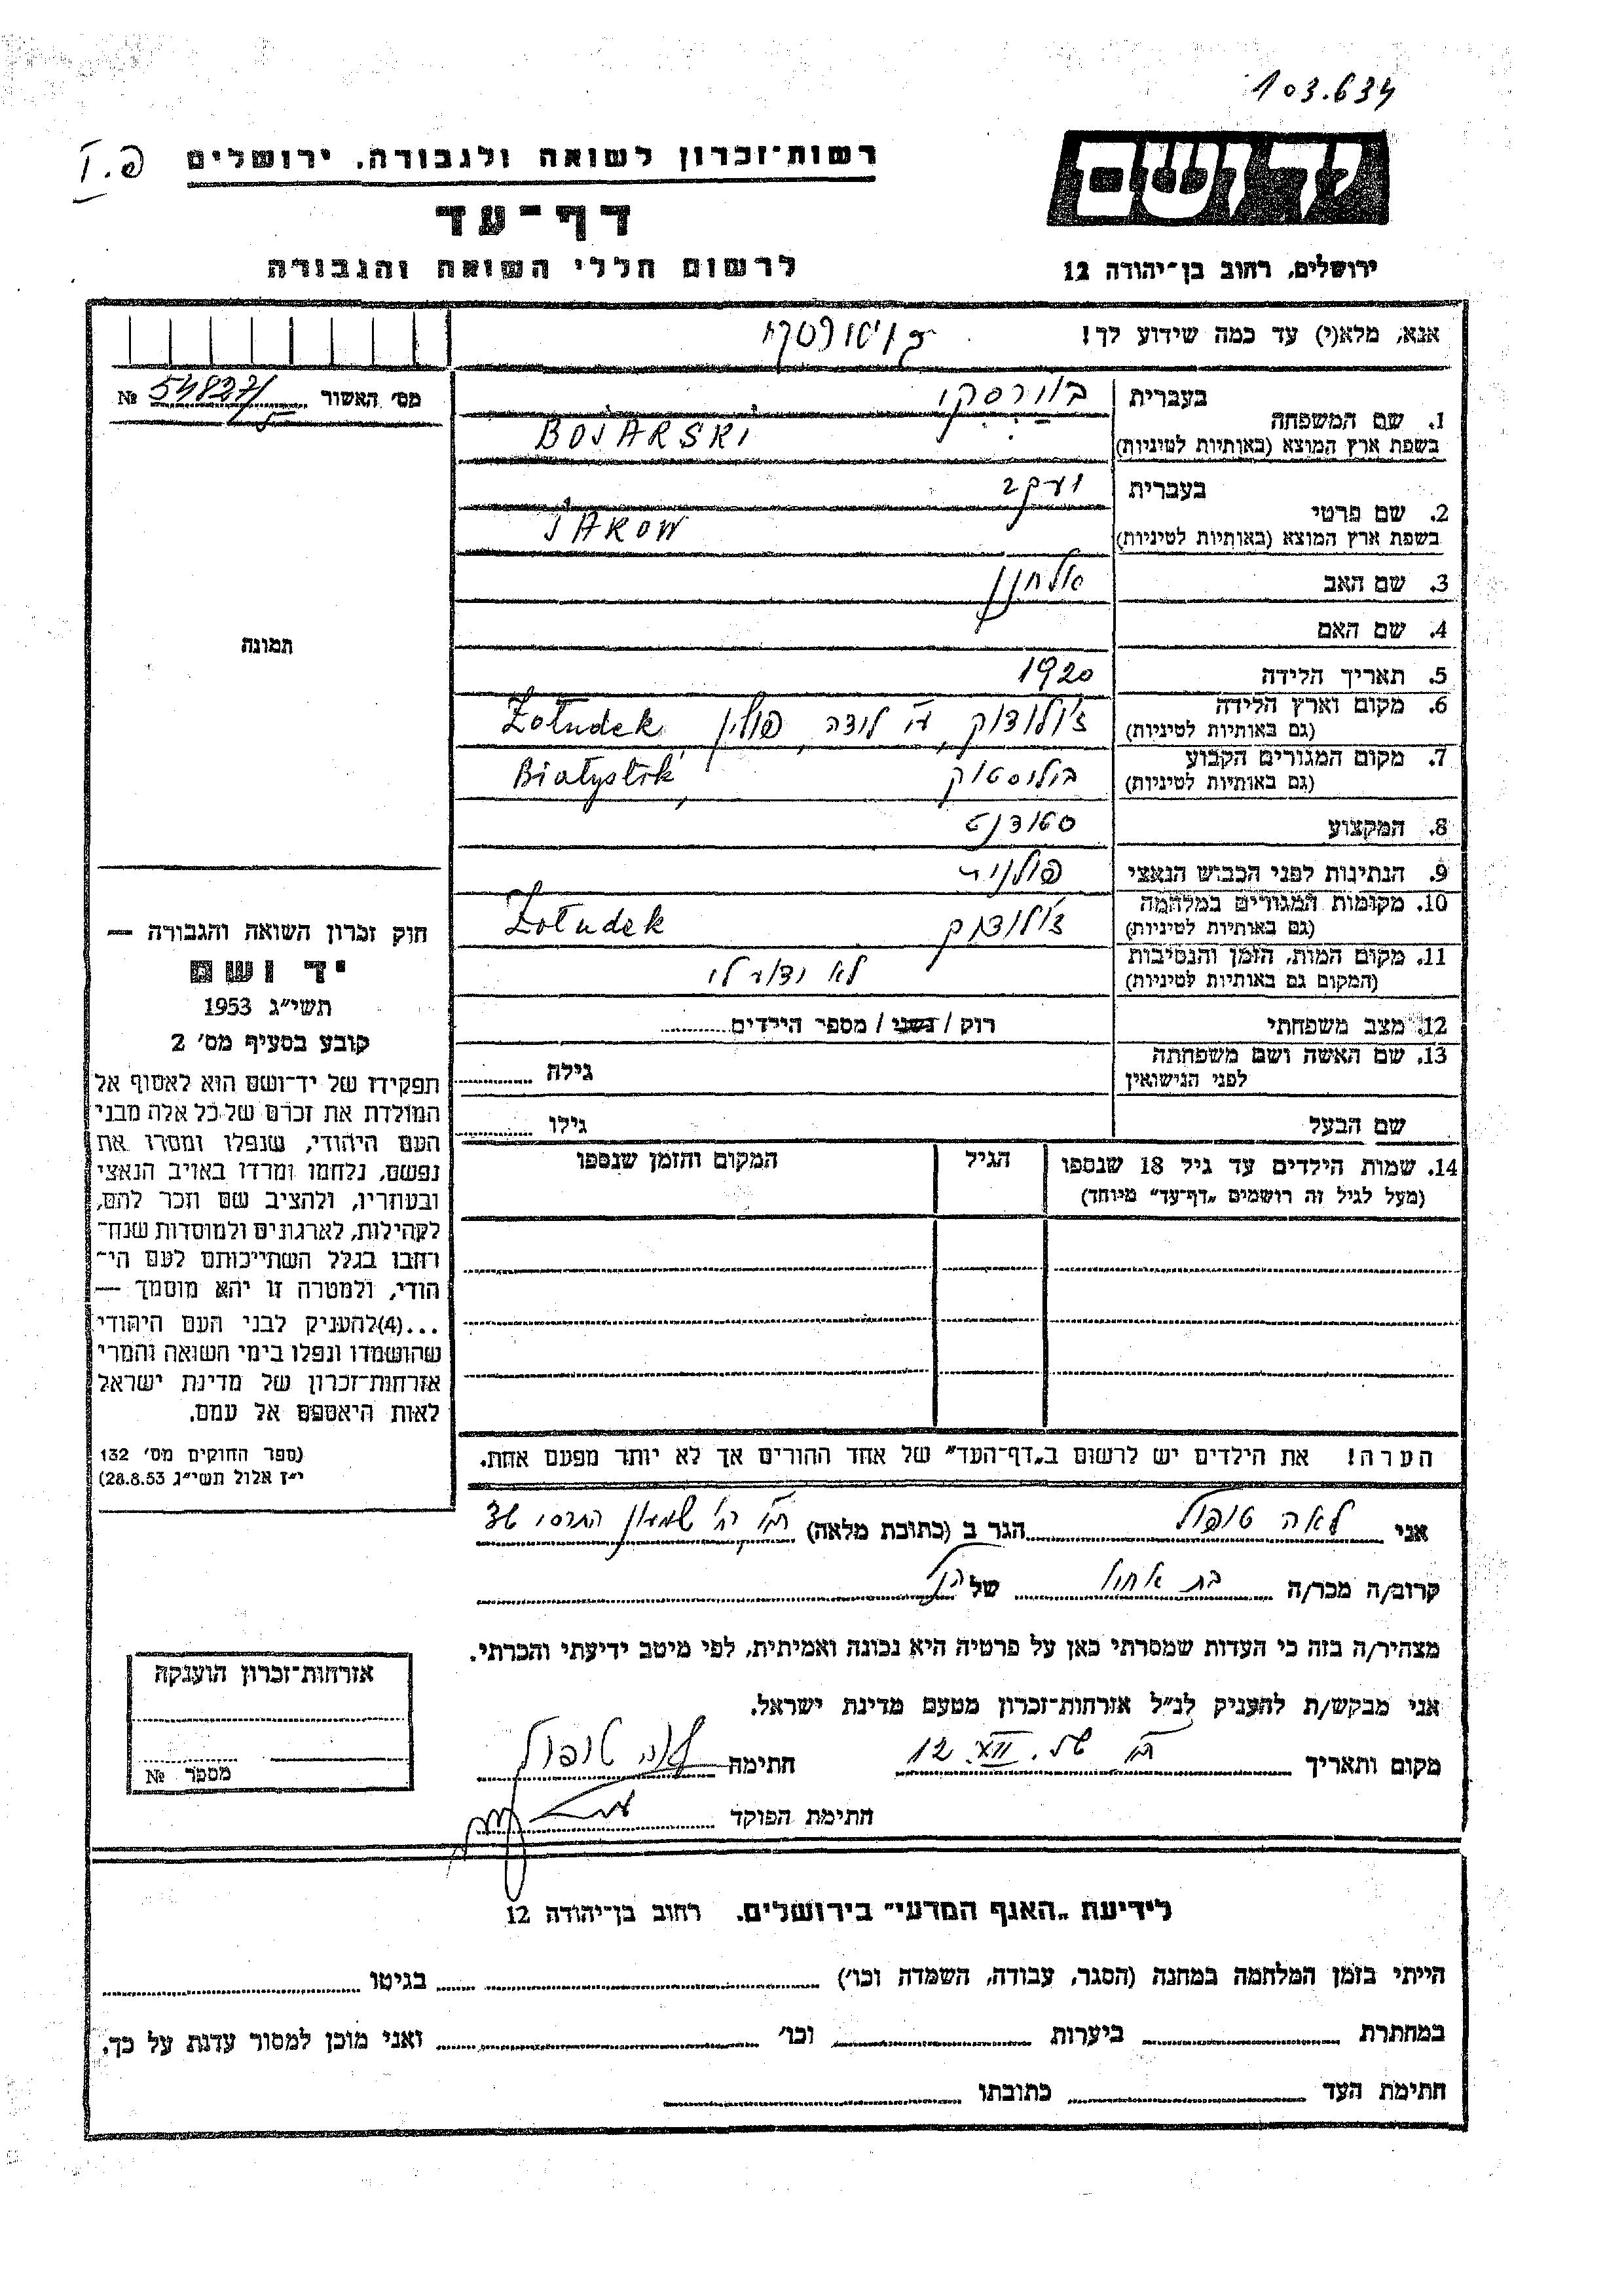 103.634
יד ושם
רשות־זכרון לשואה ולגבורה, ירושלים
פ. I
דף־עד
ירושלים, רחוב בן־יהודה 12
לרשום חללי השואה והגבורה
אנא, מלא(י) עד כמה שידוע לך!
מס׳ האשור № 54827/5
1. שם המשפחה
בעברית
בוירסקי
בשפת ארץ המוצא (באותיות לטיניות)
BOJARSKI
2. שם פרטי
בעברית
יעקב
בשפת ארץ המוצא (באותיות לטיניות)
JAKOW
3. שם האב אלחנן
4. שם האם
תמונה
5. תאריך הלידה 1920
6. מקום וארץ הלידה
(גם באותיות לטיניות)
ז׳ולודוק, ע״י לידה, פולין Żołudek
7. מקום המגורים הקבוע
(גם באותיות לטיניות)
ביליסטוק Białystok
8. המקצוע סטודנט
9. הנתינות לפני הכבוש הנאצי פולנית
10. מקומות המגורים במלחמה
(גם באותיות לטיניות)
ז׳ולודוק Żołudek
11. מקום המות, הזמן והנסיבות
(המקום גם באותיות לטיניות)
לא ידוע לי
12. מצב משפחתי רוק / נשוי / מספר הילדים
13. שם האשה ושם משפחתה
לפני הנישואין
גילה
שם הבעל גילו
14. שמות הילדים עד גיל 18 שנספו
(מעל לגיל זה רושמים „דף־עד״ מיוחד)
הגיל
המקום והזמן שנספו
חוק זכרון השואה והגבורה —
יד ושם
תשי״ג 1953
קובע בסעיף מס׳ 2
תפקידו של יד־ושם הוא לאסוף אל
המולדת את זכרם של כל אלה מבני
העם היהודי, שנפלו ומסרו את
נפשם, נלחמו ומרדו באויב הנאצי
ובעוזריו, ולהציב שם וזכר להם,
לקהילות, לארגונים ולמוסדות שנח־
רחבו בגלל השתייכותם לעם הי־
הודי, ולמטרה זו יהא מוסמך —
...(4)להעניק לבני העם היהודי
שהושמדו ונפלו בימי השואה והמרי
אזרחות־זכרון של מדינת ישראל
לאות היאספם אל עמם.
(ספר החוקים מס׳ 132
י״ז אלול תשי״ג 28.8.53)
הערה! את הילדים יש לרשום ב„דף־העד״ של אחד ההורים אך לא יותר מפעם אחת.
אני לאה טופול הגר ב (כתובת מלאה) שמעון התרסי
קרוב/ה מכר/ה בת של
מצהיר/ה בזה כי העדות שמסרתי כאן על פרטיה היא נכונה ואמיתית, לפי מיטב ידיעתי והכרתי.
אני מבקש/ת להעניק לנ״ל אזרחות־זכרון מטעם מדינת ישראל.
מקום ותאריך 12. XII. חתימה לאה טופול
חתימת הפוקד
אזרחות־זכרון הוענקה
מספר №
לידיעת „האגף המדעי״ בירושלים. רחוב בן־יהודה 12
הייתי בזמן המלחמה במחנה (הסגר, עבודה, השמדה וכו׳) בגיטו
במחתרת ביערות וכו׳ ואני מוכן למסור עדות על כך.
חתימת העד כתובתו